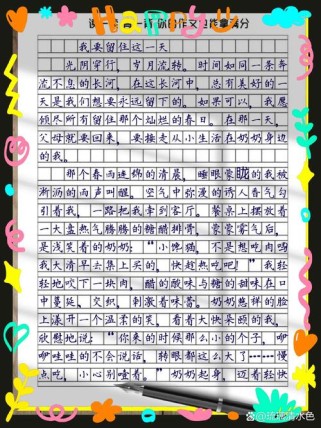 我要留住这一天
光阴穿行，岁月流转。时间如同一条奔
流不息的长河，在这长河中，总有美好的一
天是我们想要永远留下的。如果可以，我愿
倾尽所有留住那个灿烂的春日。在那一天，
父母就要回来，要接走从小生活在奶奶身边
的我。
那个春雨连绵的清晨，睡眼朦胧的我被
淅沥的雨声叫醒。空气中弥漫的诱人香气勾
引着我，一路把我拿到客厅。餐桌上摆放着
一大盘热气腾腾的糖醋排骨，袅袅雾气后，
是浅笑着的奶奶：“小馋猫，不是想吃肉吗
我大清早去集上买的，快趁热吃吧！”我轻
轻地咬下一块肉，醋的酸味与糖的甜味在口
中蔓延、交织，刺激着味蕾。奶奶慈祥的脸
上漾开一个温柔的笑，看着大快朵颐的我，
欣慰地说：“你来的时候那么小的个子，咿
咿哇哇的不会说话，转眼都这么大了……慢
点吃，小心别噎着。”奶奶起身，迈着轻快